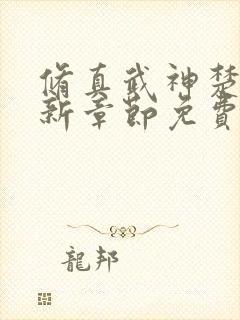 脩真武神楚
新章節免費
龍邦